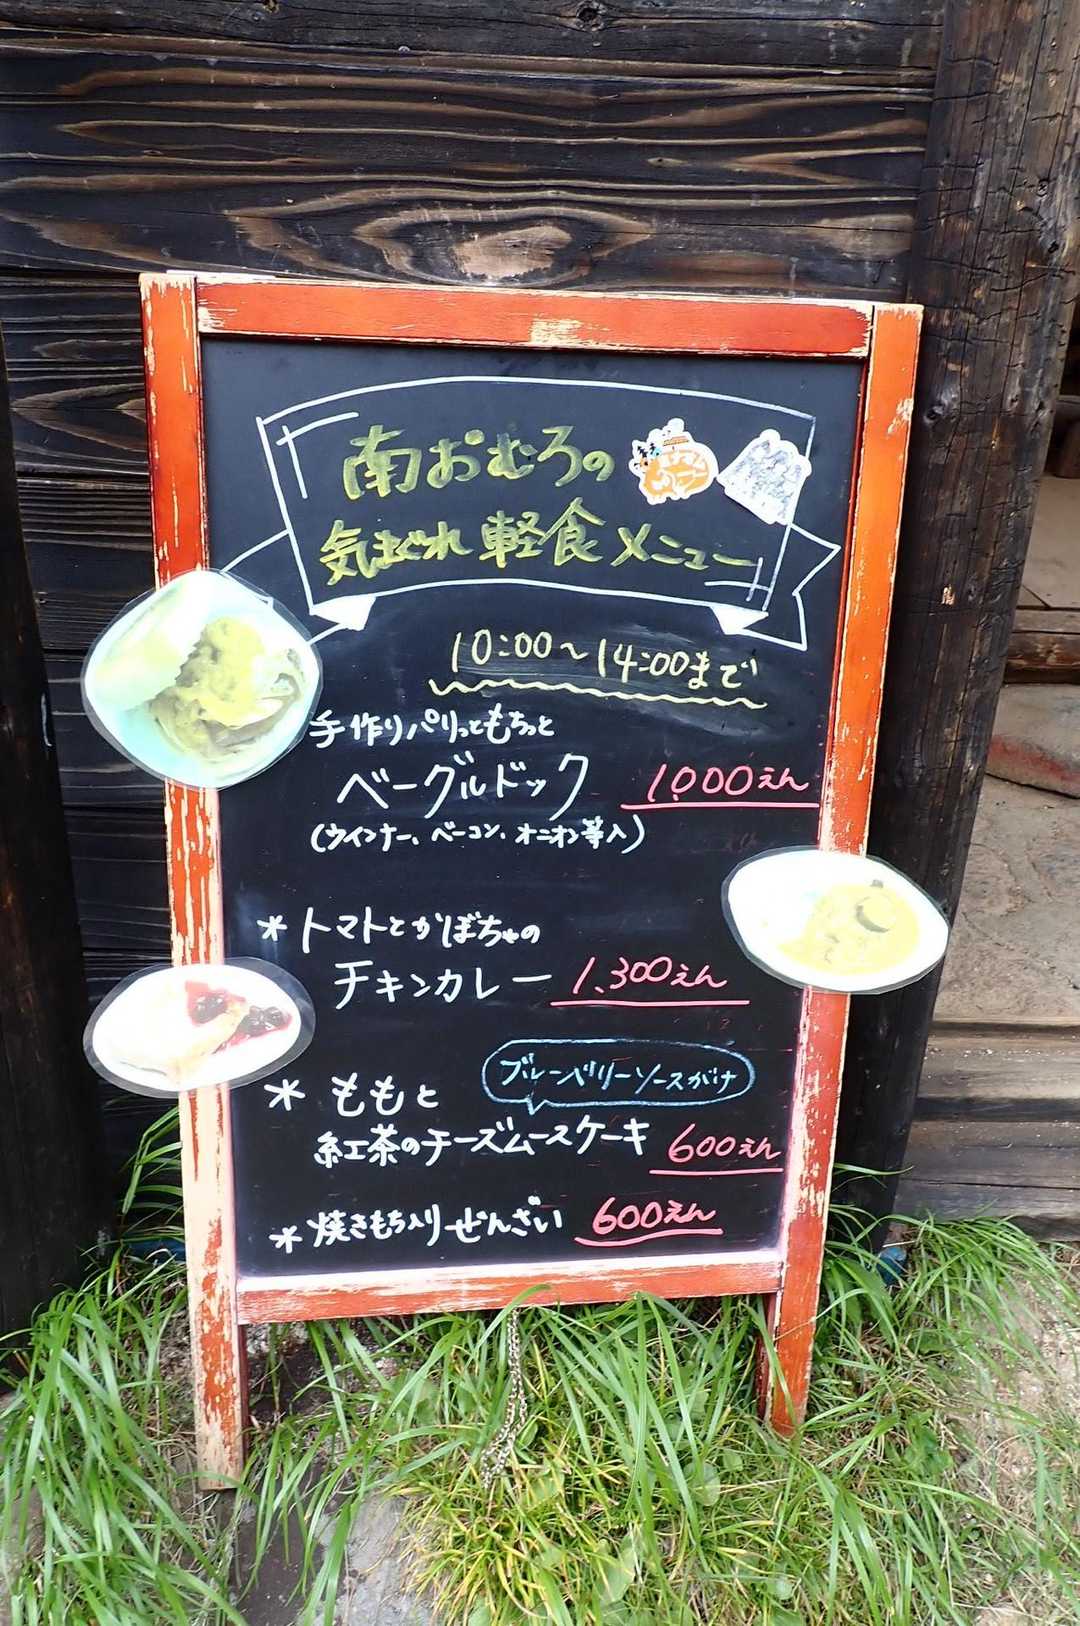 南おむろの
気まぐれ 軽食 メニュー
10:00〜14:00まで
手作りパリっともちっと
ベーグルドック 1,000えん
(ウインナー、ベーコン、オニオン等入)
* トマトとかぼちゃの
チキンカレー 1,300えん
ブルーベリーソースがけ
* ももと
紅茶のチーズムースケーキ 600えん
* 焼きもち入りぜんざい 600えん